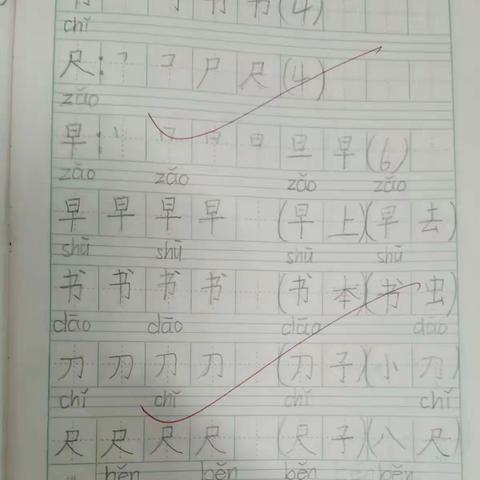 书 (4)
chǐ
尺: ㇕ コ 尸 尺 (4)
zǎo
早: 丨 冂 日 日 旦 早 (6)
zǎo zǎo zǎo zǎo
早 早 早 早 (早 上)(早 去)
shū shū shū shū
书 书 书 书 (书 本)(书 虫)
dāo dāo dāo dāo
刀 刀 刀 刀 (刀 子)(小 刀)
chǐ chǐ chǐ chǐ
尺 尺 尺 尺 (尺 子)(八 尺)
běn běn běn běn